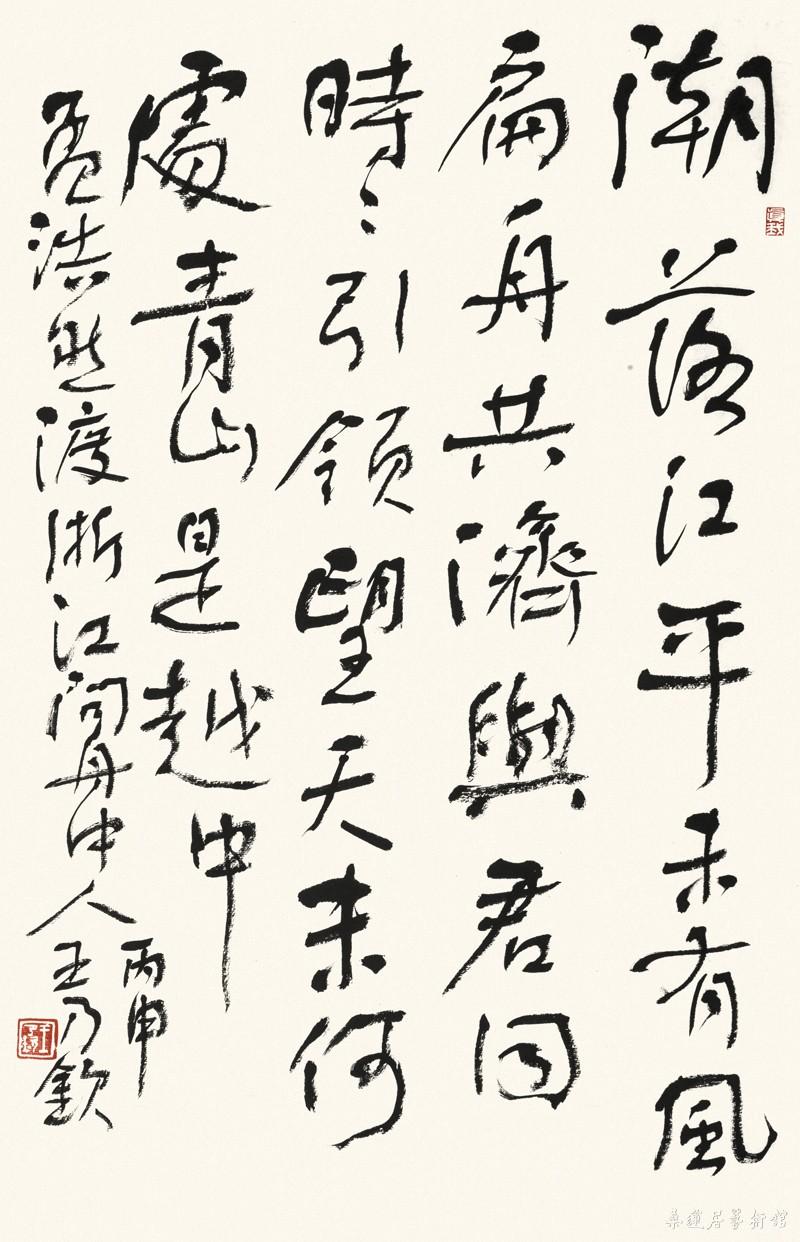 潮落江平未有風
扁舟共濟與君同
時〻引領望天末何
處青山是越中
孟浩然渡浙江問舟中人
丙申
王乃欽
桑蓮居藝術館